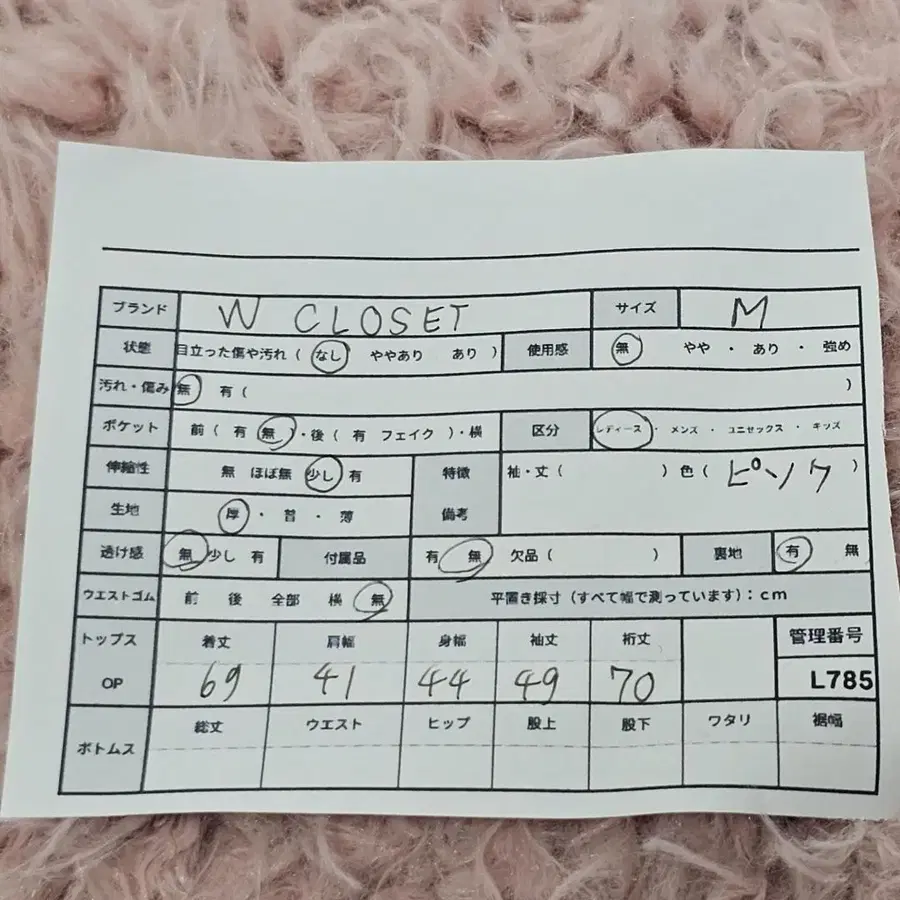 ブランド W CLOSET サイズ M
状態 目立った傷や汚れ ( なし ややあり あり ) 使用感 無 やや ・ あり ・ 強め
汚れ・傷み 無 有 ( )
ポケット 前 ( 有 無 )・後 ( 有 フェイク )・横 区分 レディース ・ メンズ ・ ユニセックス ・ キッズ
伸縮性 無 ほぼ無 少し 有 特徴 袖・丈 ( ) 色 ( ピンク )
生地 厚 ・ 普 ・ 薄 備考
透け感 無 少し 有 付属品 有 無 欠品 ( ) 裏地 有 無
ウエストゴム 前 後 全部 横 無 平置き採寸 (すべて幅で測っています) : cm
トップス 着丈 肩幅 身幅 袖丈 裄丈 管理番号
OP 69 41 44 49 70 L785
ボトムス 総丈 ウエスト ヒップ 股上 股下 ワタリ 裾幅